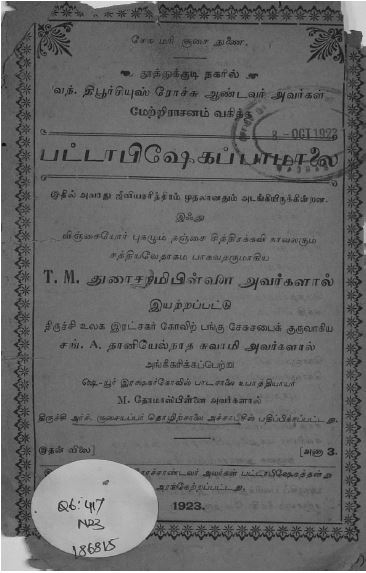 சேசு மரி சூசை துணை.
தூத்துக்குடி நகரில்
வந். திபூர்சியுஸ் ரோச்சு ஆண்டவர் அவர்கள்
மேற்றிராசனம் வகித்த
8 - OCT 1923
பட்டாபிஷேகப்பாமாலை
இதில் அவரது ஜீவியசரித்திரம் முதலானதும் அடங்கியிருக்கின்றன.
இஃது
விஞ்சையோர் புகழும் தஞ்சை சித்திரக்கவி நாவலரும்
சத்தியவேதாகம பாகவதருமாகிய
T. M. துரைசாமிபிள்ளை அவர்களால்
இயற்றப்பட்டு
திருச்சி உலக இரட்சகர் கோவிற் பங்கு சேசுசபைக் குருவாகிய
சங். A. தானியேல்நாத சுவாமி அவர்களால்
அங்கீகரிக்கப்பெற்று
ஷெ-யூர் இரக்ஷகர்கோவில் பாடசாலை உபாத்தியாயர்
M. தோமாஸ்பிள்ளை அவர்களால்
திருச்சி அர்ச். சூசையப்பர் தொழிற்சாலை அச்சாபீசில் பதிப்பிக்கப்பட்டது.
இதன் விலை] [அணா 3.
ஆண்டவர் அவர்கள் பட்டாபிஷேகத்தன்று
அரங்கேற்றப்பட்டது.
1923.
Q6:417
N23
186815